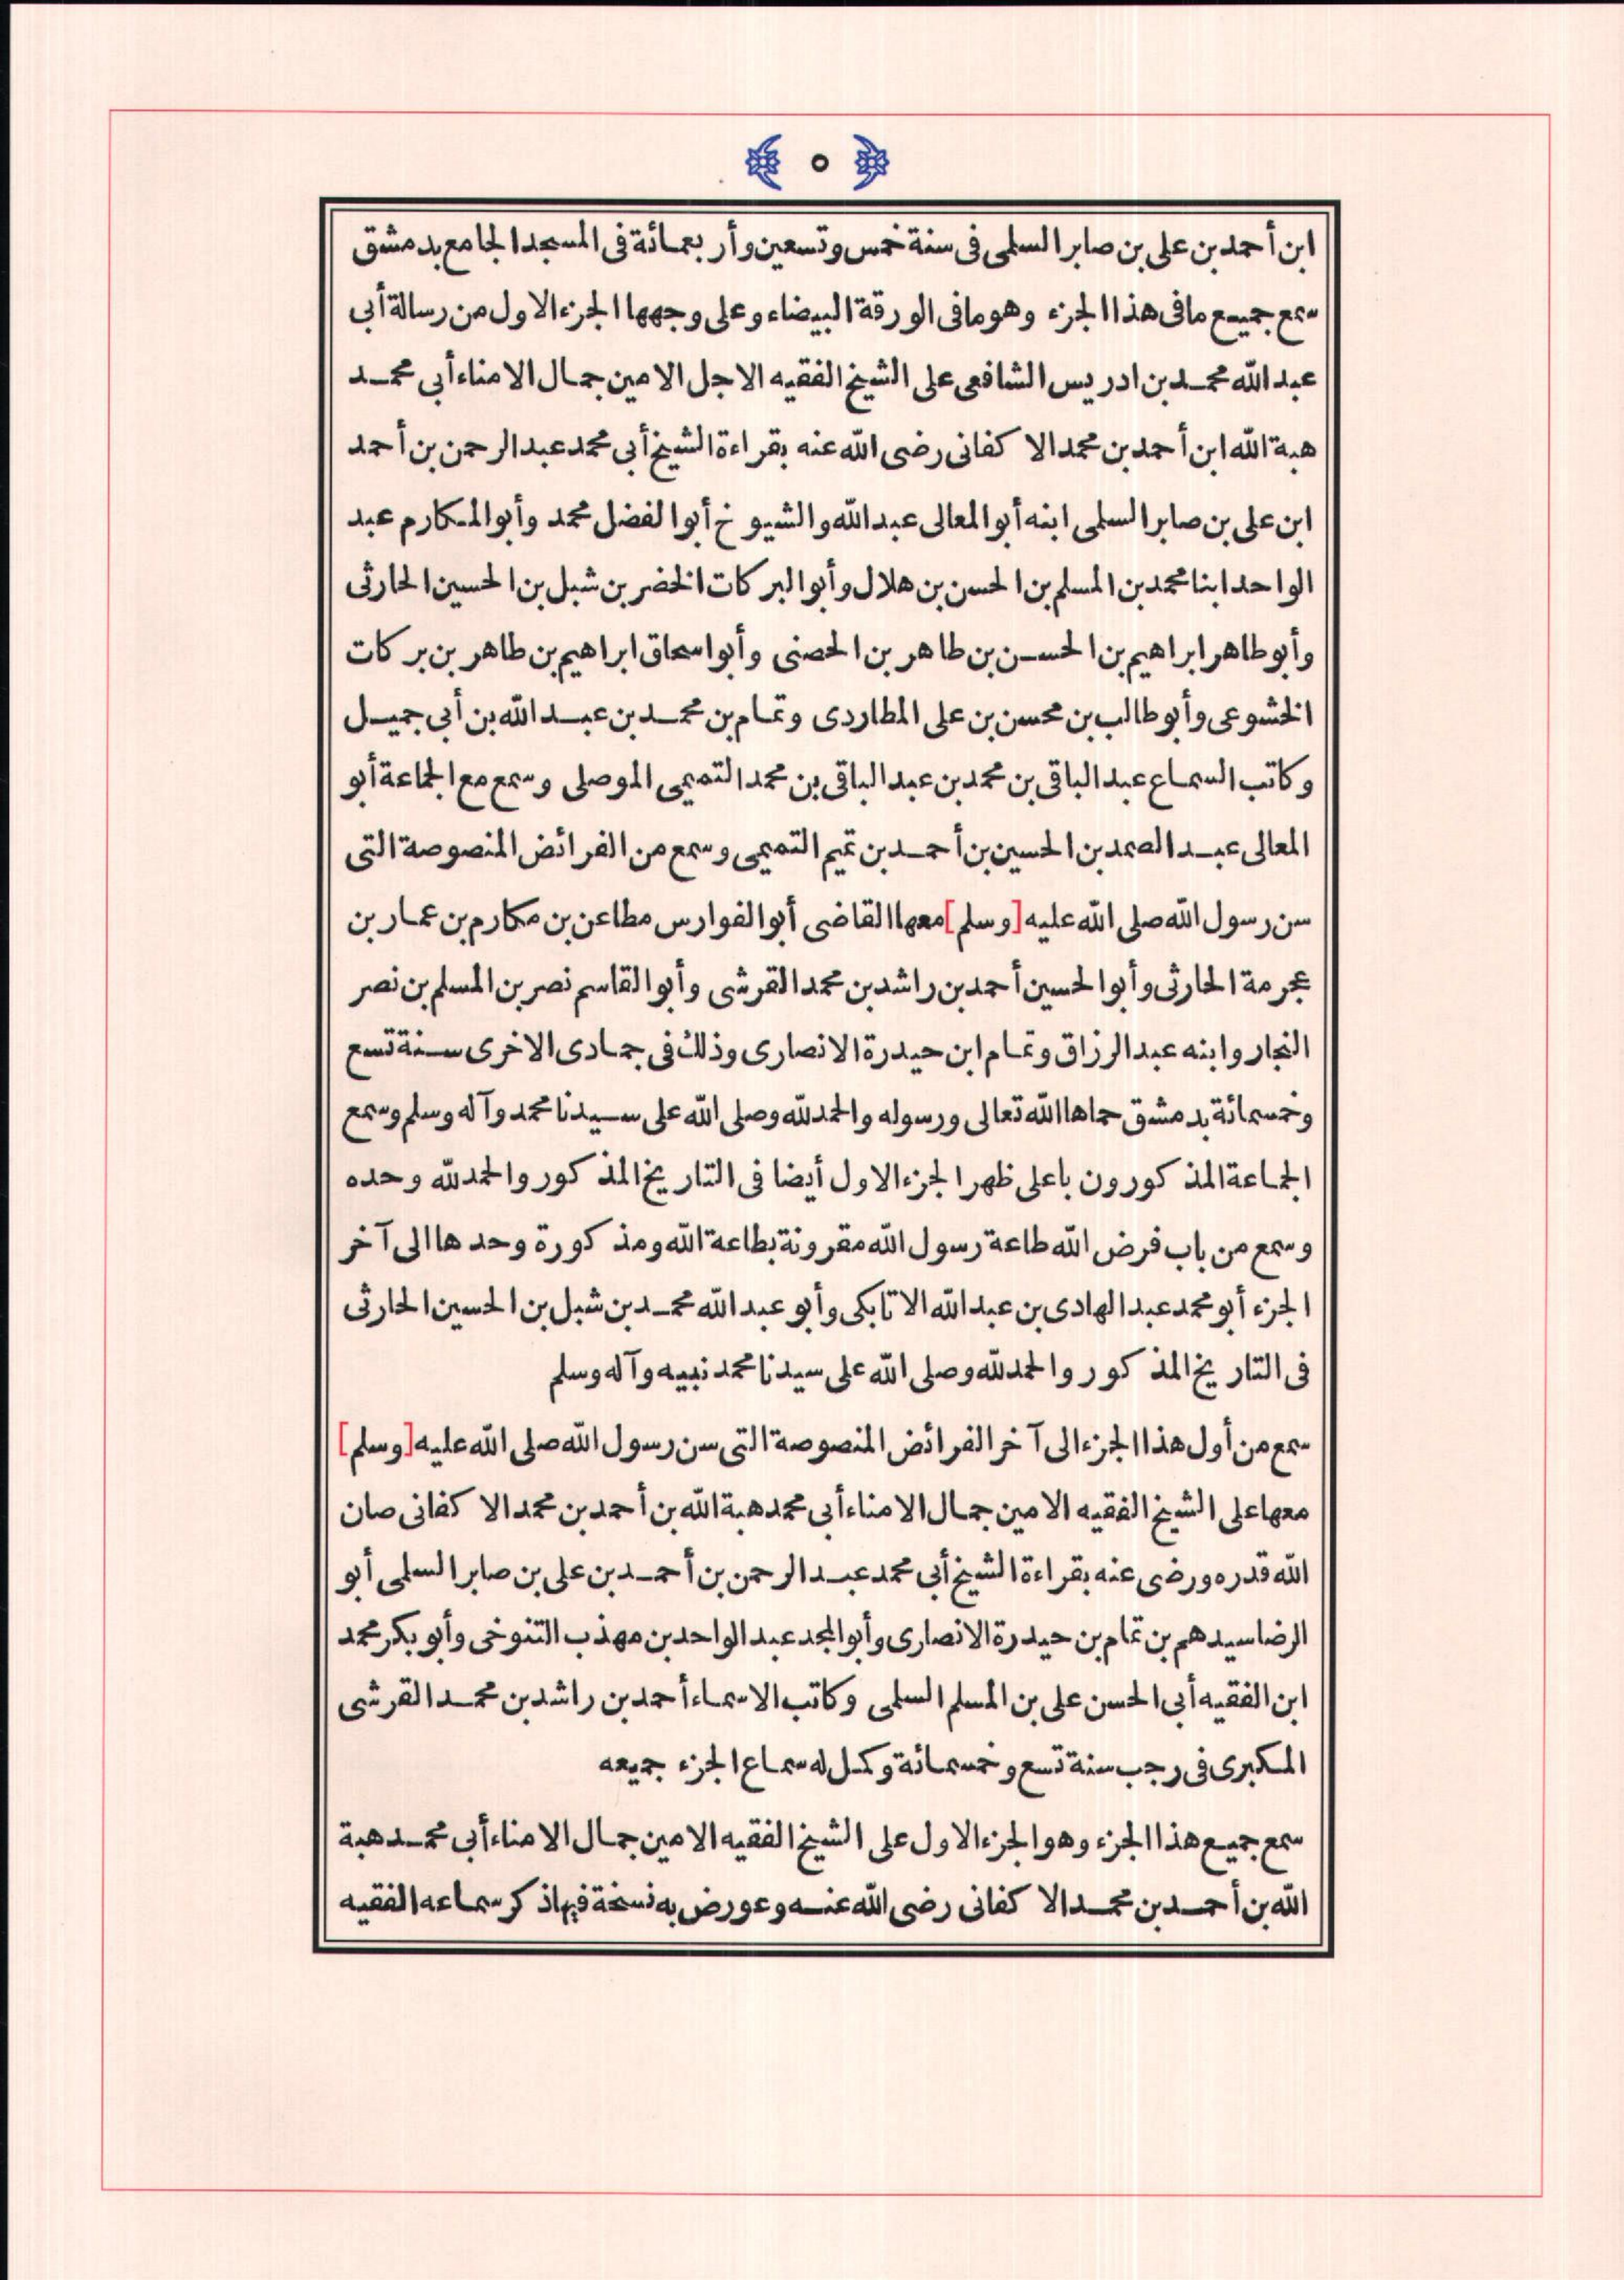 ﴿ ٥ ﴾
ابن أحمد بن على بن صابر السلمى فى سنة خمس وتسعين وأربعمائة فى المسجد الجامع بدمشق
سمع جميع ما فى هذا الجزء وهو ما فى الورقة البيضاء وعلى وجهها الجزء الاول من رسالة أبى
عبد الله محمد بن ادريس الشافعى على الشيخ الفقيه الاجل الامين جمال الامناء أبى محمد
هبة الله ابن أحمد بن محمد الاكفانى رضى الله عنه بقراءة الشيخ أبى محمد عبد الرحمن بن أحمد
ابن على بن صابر السلمى ابنه أبو المعالى عبد الله والشيوخ أبو الفضل محمد وأبو المكارم عبد
الواحد ابنا محمد بن المسلم بن الحسن بن هلال وأبو البركات الخضر بن شبل بن الحسين الحارثى
وأبو طاهر ابراهيم بن الحسن بن طاهر بن الحصنى وأبو اسحاق ابراهيم بن طاهر بن بركات
الخشوعى وأبو طالب بن محسن بن على المطاردى وتمام بن محمد بن عبد الله بن أبى جميل
وكاتب السماع عبد الباقى بن محمد بن عبد الباقى بن محمد التميمى الموصلى وسمع مع الجماعة أبو
المعالى عبد الصمد بن الحسين بن أحمد بن تميم التميمى وسمع من الفرائض المنصوصة التى
سن رسول الله صلى الله عليه [وسلم] معها القاضى أبو الفوارس مطاعن بن مكارم بن عمار بن
عجرمة الحارثى وأبو الحسين أحمد بن راشد بن محمد القرشى وأبو القاسم نصر بن المسلم بن نصر
النجار وابنه عبد الرزاق وتمام ابن حيدرة الانصارى وذلك فى جمادى الاخرى سنة تسع
وخمسمائة بدمشق حماها الله تعالى ورسوله والحمد لله وصلى الله على سيدنا محمد وآله وسلم وسمع
الجماعة المذكورون باعلى ظهر الجزء الاول أيضا فى التاريخ المذكور والحمد لله وحده
وسمع من باب فرض الله طاعة رسول الله مقرونة بطاعة الله ومذكورة وحدها الى آخر
الجزء أبو محمد عبد الهادى بن عبد الله الاتابكى وأبو عبد الله محمد بن شبل بن الحسين الحارثى
فى التاريخ المذكور والحمد لله وصلى الله على سيدنا محمد نبيه وآله وسلم
سمع من أول هذا الجزء الى آخر الفرائض المنصوصة التى سن رسول الله صلى الله عليه [وسلم]
معها على الشيخ الفقيه الامين جمال الامناء أبى محمد هبة الله بن أحمد بن محمد الاكفانى صان
الله قدره ورضى عنه بقراءة الشيخ أبى محمد عبد الرحمن بن أحمد بن على بن صابر السلمى أبو
الرضا سيدهم بن تمام بن حيدرة الانصارى وأبو المجد عبد الواحد بن مهذب التنوخى وأبو بكر محمد
ابن الفقيه أبى الحسن على بن المسلم السلمى وكاتب الاسماء أحمد بن راشد بن محمد القرشى
المكبرى فى رجب سنة تسع وخمسمائة وكمل له سماع الجزء جميعه
سمع جميع هذا الجزء وهو الجزء الاول على الشيخ الفقيه الامين جمال الامناء أبى محمد هبة
الله بن أحمد بن محمد الاكفانى رضى الله عنه وعورض به نسخة فيها ذكر سماعه الفقيه